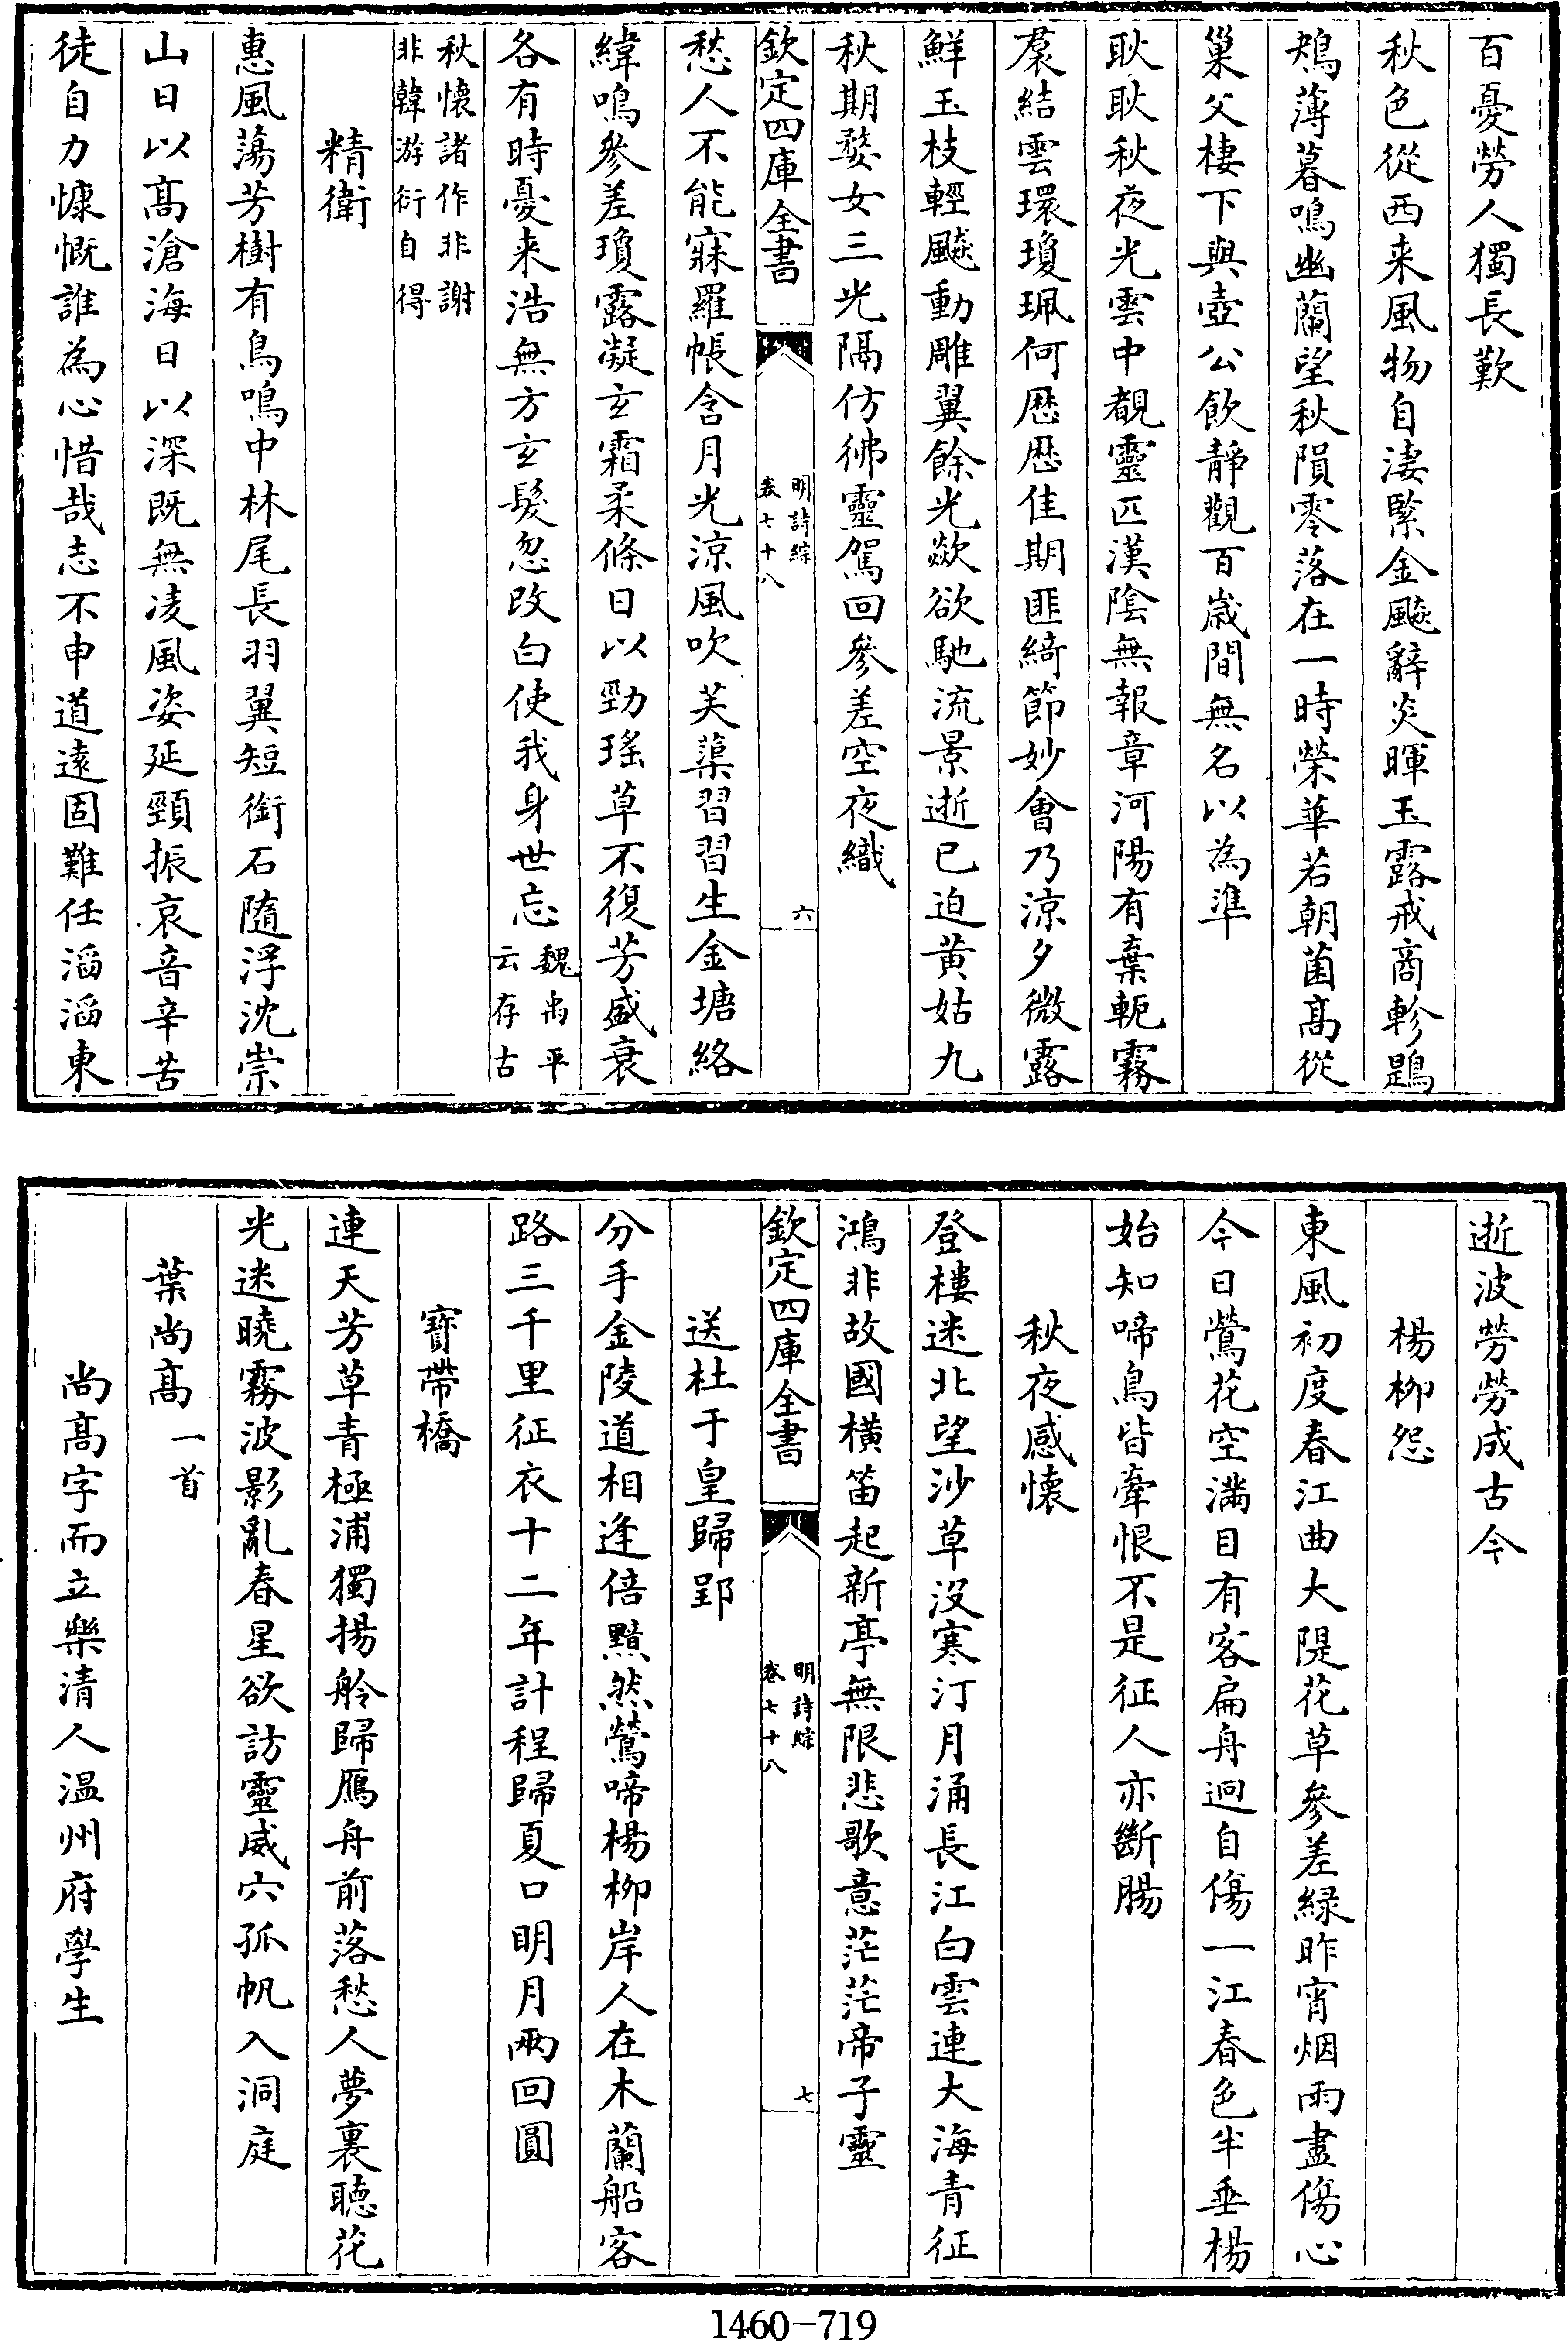 百憂勞人獨長歎
秋色從西来風物自淒緊金飈辭炎暉玉露戒商軫鶗
鴂薄暮鳴幽蘭望秋隕零落在一時榮華若朝菌髙從
巢父棲下與壺公飲靜觀百歳間無名以為準
耿耿秋夜光雲中覩靈匹漢隂無報章河陽有棄軛霧
裠結雲環瓊珮何厯厯佳期匪綺節妙會乃涼夕微露
鮮玉枝輕飈動雕翼餘光歘欲馳流景逝已迫黄姑九
秋期婺女三光隔仿彿靈駕回參差空夜織
欽定四庫全書
明詩綜
卷七十八
六
愁人不能寐羅帳含月光涼風吹芙蕖習習生金塘絡
緯鳴參差瓊露凝玄霜柔條日以勁瑤草不復芳盛衰
各有時憂来浩無方玄髮忽改白使我身世忘
魏禹平
云存古
秋懐諸作非謝
非韓游衍自得
精衛
惠風蕩芳樹有鳥鳴中林尾長羽翼短銜石隨浮沈崇
山日以髙滄海日以深既無凌風姿延頸振哀音辛苦
徒自力慷慨誰為心惜哉志不申道遠固難任滔滔東
逝波勞勞成古今
楊柳怨
東風初度春江曲大隄花草參差緑昨宵烟雨盡傷心
今日鶯花空滿目有客扁舟逈自傷一江春色半垂楊
始知啼鳥皆牽恨不是征人亦斷腸
秋夜感懐
登樓迷北望沙草沒寒汀月涌長江白雲連大海青征
鴻非故國橫笛起新亭無限悲歌意茫茫帝子靈
欽定四庫全書
明詩綜
卷七十八
七
送杜于皇歸郢
分手金陵道相逢倍黯然鶯啼楊柳岸人在木蘭船客
路三千里征衣十二年計程歸夏口明月兩回圓
寳帶橋
連天芳草青極浦獨揚舲歸鴈舟前落愁人夢裏聽花
光迷曉霧波影亂春星欲訪靈威穴孤帆入洞庭
葉尚髙一首
尚髙字而立樂清人温州府學生
1460-719